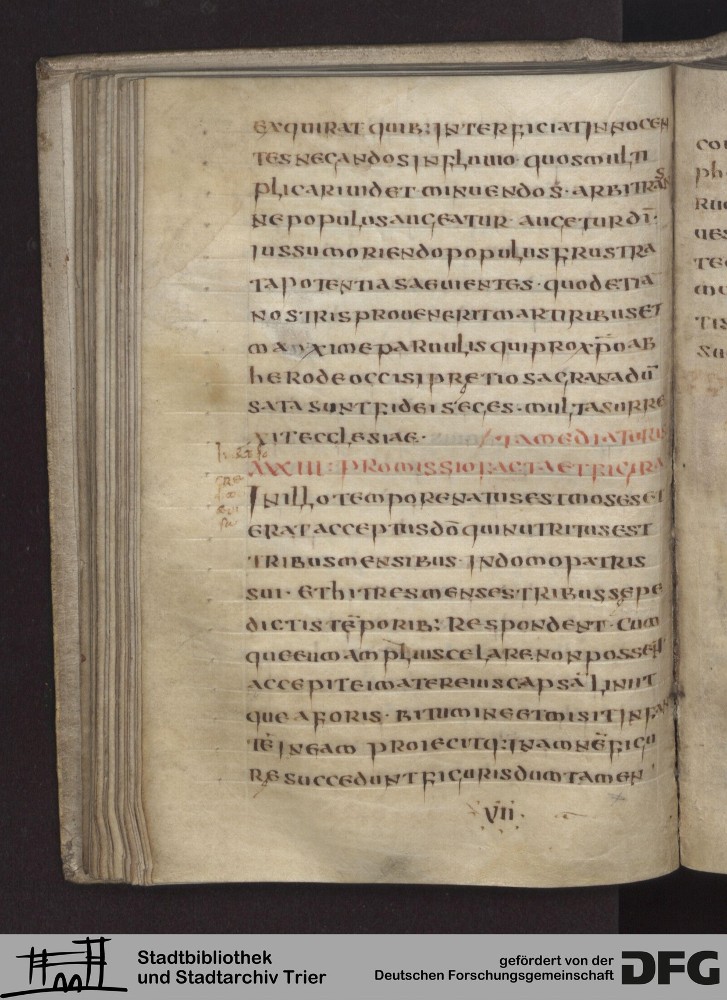 EXQUIRAT QUIB: INTERFICIAT INNOCEN
TES NECANDOS IN FLUUIO · QUOS MULTI
PLICARI UIDET MINUENDOS · ARBITRANS
NE POPULUS AUGEATUR · AUGETUR DĪ ·
IUSSU MORIENDO POPULUS FRUSTRA
TA POTENTIA SAEUIENTES · QUOD ETIA
NOSTRIS PROUENERIT MARTIRIBUS ET
MAXIME PARUULIS QUI PRO XP̄O AB
HERODE OCCISI PRETIOSA GRANA DŪ
SATA SUNT FIDEI SEGES · MULTA SURRE
XIT ECCLESIAE · TA MEDIATORIS
XXXIII: PROMISSIO FACTA ET FIGURA
IN ILLO TEMPORE NATUS EST MOSES ET
ERAT ACCEPTUS DŌ QUI NUTRITUS EST
TRIBUS MENSIBUS · IN DOMO PATRIS
SUI · ET HI TRES MENSES TRIBUS SEPE
DICTIS TĒPORIB: RESPONDENT · CUM
QUE EUM AMPLIUS CELARE NON POSSET
ACCEPIT EI MATER EIUS CAPSĀ LINIIT
QUE A FORIS · BITUMINE ET MISIT INFAN
TĒ IN EAM PROIECITQ: IN AMNĒ FIGU
RE SUCCEDUNT FIGURIS DUM TAMEN
VII
Stadtbibliothek
und Stadtarchiv Trier
gefördert von der
Deutschen Forschungsgemeinschaft
DFG